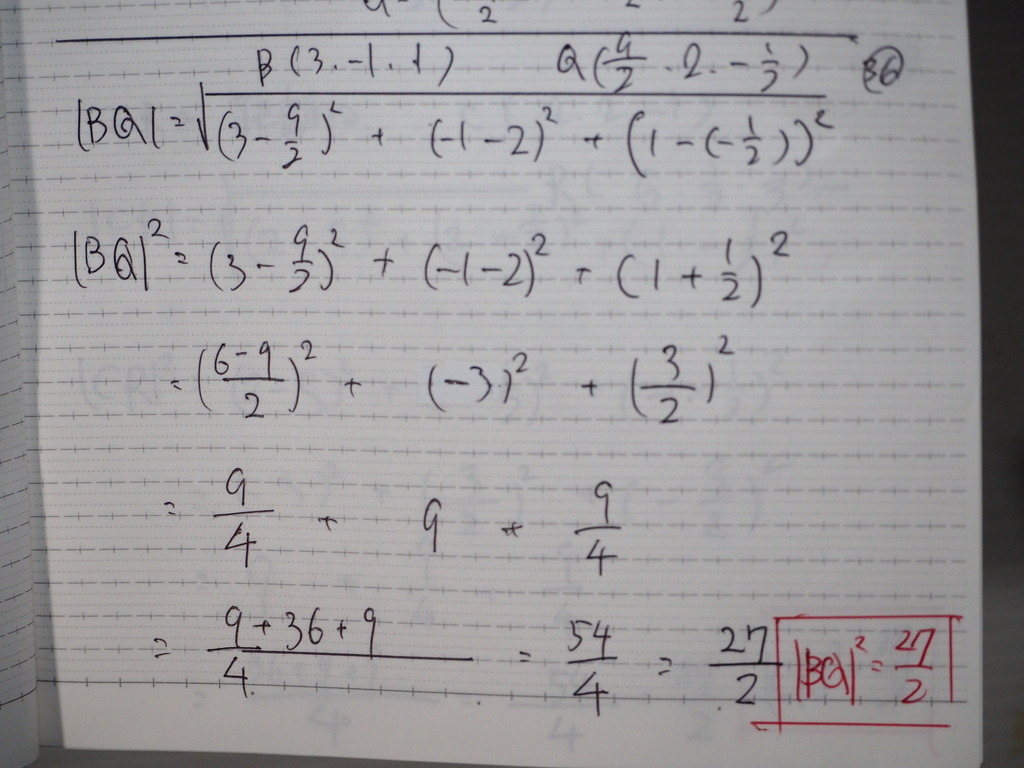 B(3.-1.1) Q(9/2.2.-1/2) BQ
|BQ|=√(3-9/2)²+(-1-2)²+(1-(-1/2))²
|BQ|²=(3-9/2)²+(-1-2)²+(1+1/2)²
=((6-9)/2)²+(-3)²+(3/2)²
=9/4+9+9/4
=(9+36+9)/4=54/4=27/2
|BQ|²=27/2